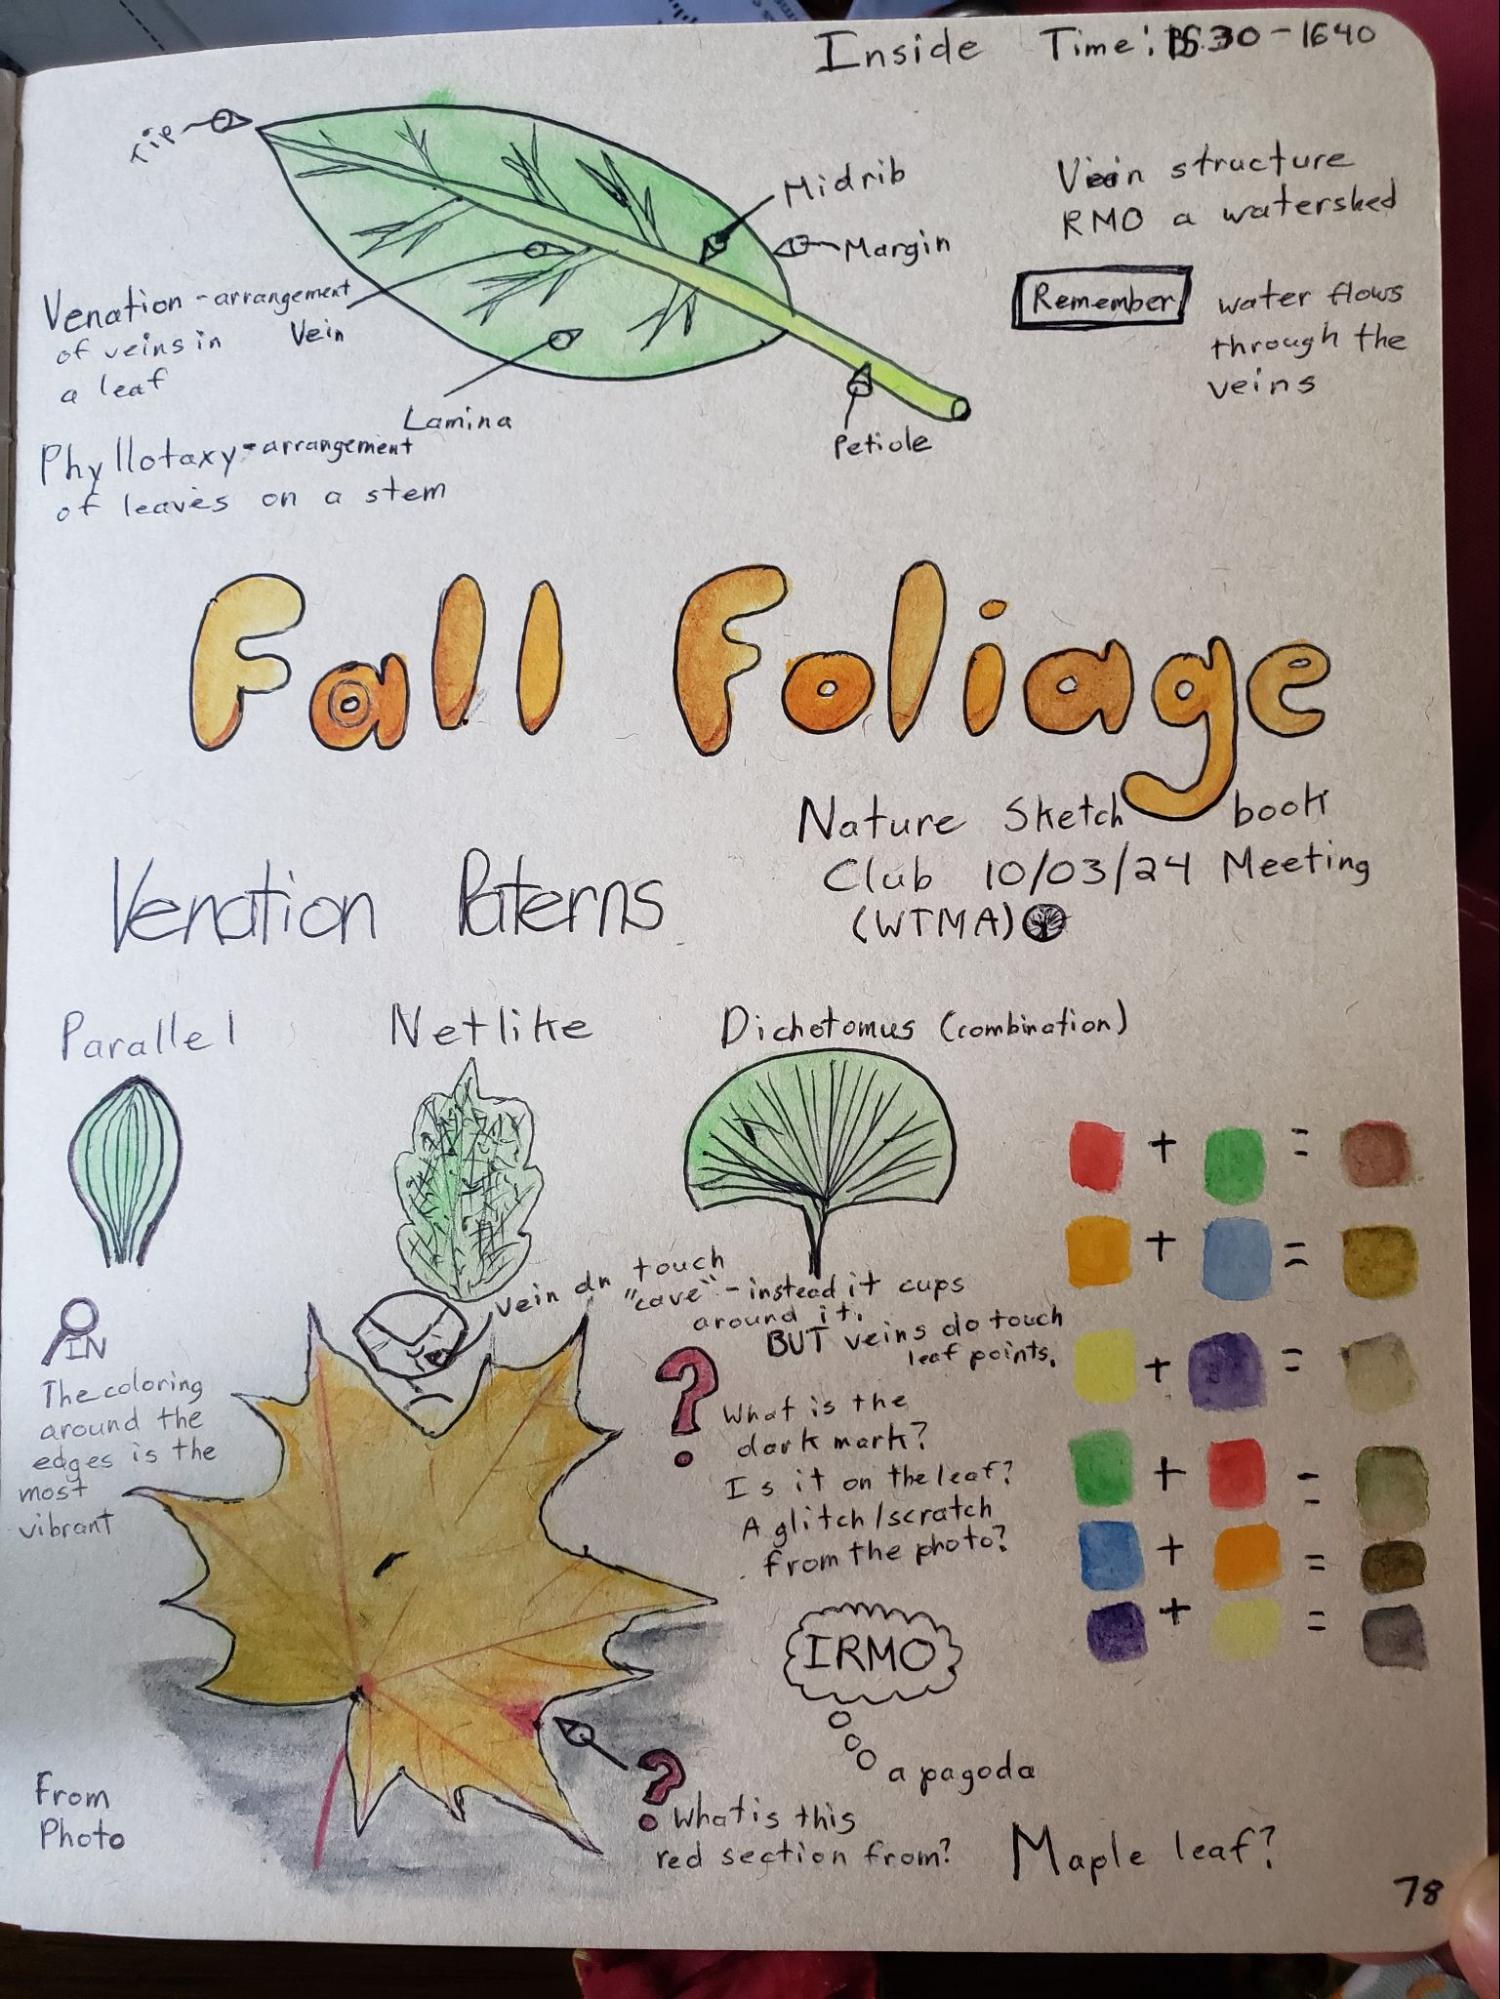 Inside Time: 1530-1640
Tip
Midrib
Margin
Vein structure
RMO a watershed
Remember
water flows
through the
veins
Venation - arrangement
of veins in
a leaf
Vein
Lamina
Petiole
Phyllotaxy - arrangement
of leaves on a stem
Fall Foliage
Nature Sketch book
Club 10/03/24 Meeting
(WTMA)
Venation Paterns
Parallel
Netlike
Dichotomus (combination)
+ =
+ =
+ =
+ =
+ =
+ =
Vein dn touch
"cave" - instead it cups
around it.
BUT veins do touch
leaf points.
IN
The coloring
around the
edges is the
most
vibrant
?
What is the
dark mark?
Is it on the leaf?
A glitch/scratch
from the photo?
IRMO
a pagoda
From
Photo
?
What is this
red section from?
Maple leaf?
78